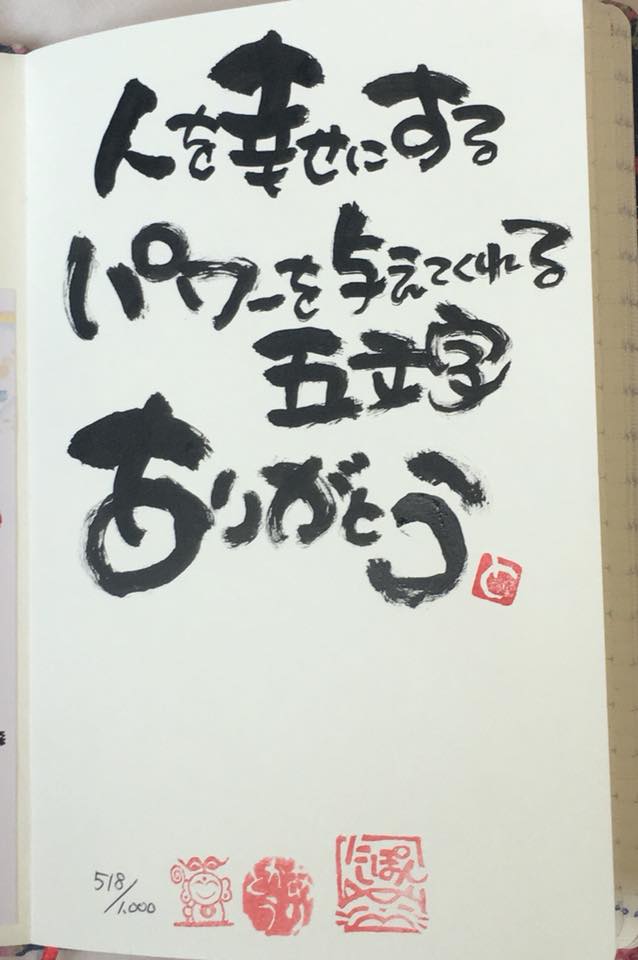 人を幸せにする
パワーを与えてくれる
五文字
ありがとう
と
518/1.000
にっぽん